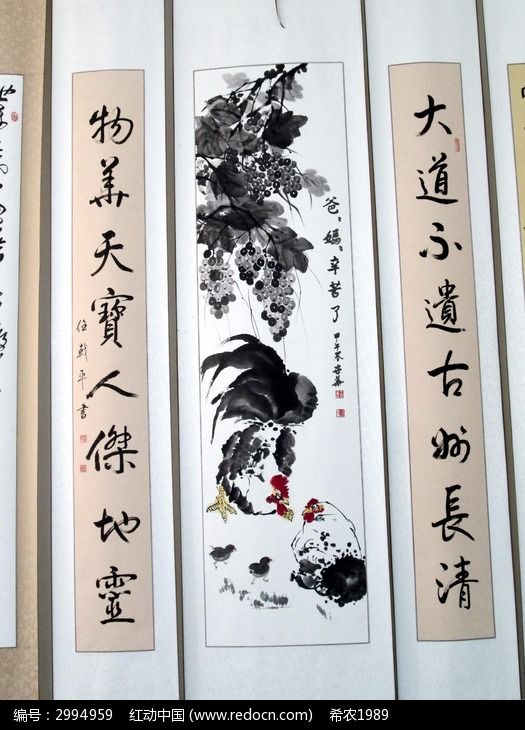 大道不遺古州長清
爸、媽、辛苦了
甲午冬
物華天寶人傑地靈
编号：2994959 红动中国 (www.redocn.com) 希农1989